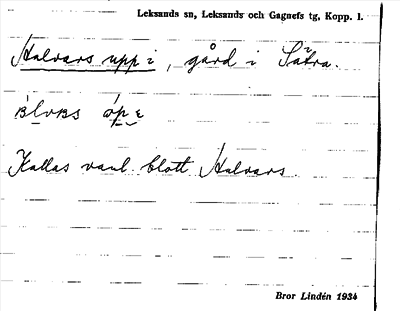 Leksands sn, Leksands och Gagnefs tg, Kopp. l.
Halvars uppi, gård i Sätra.
Kallas vanl. blott Halvars.
Bror Lindén 1934